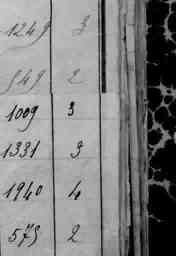 1249 3
949 2
1009 3
1331 3
1940 4
573 2